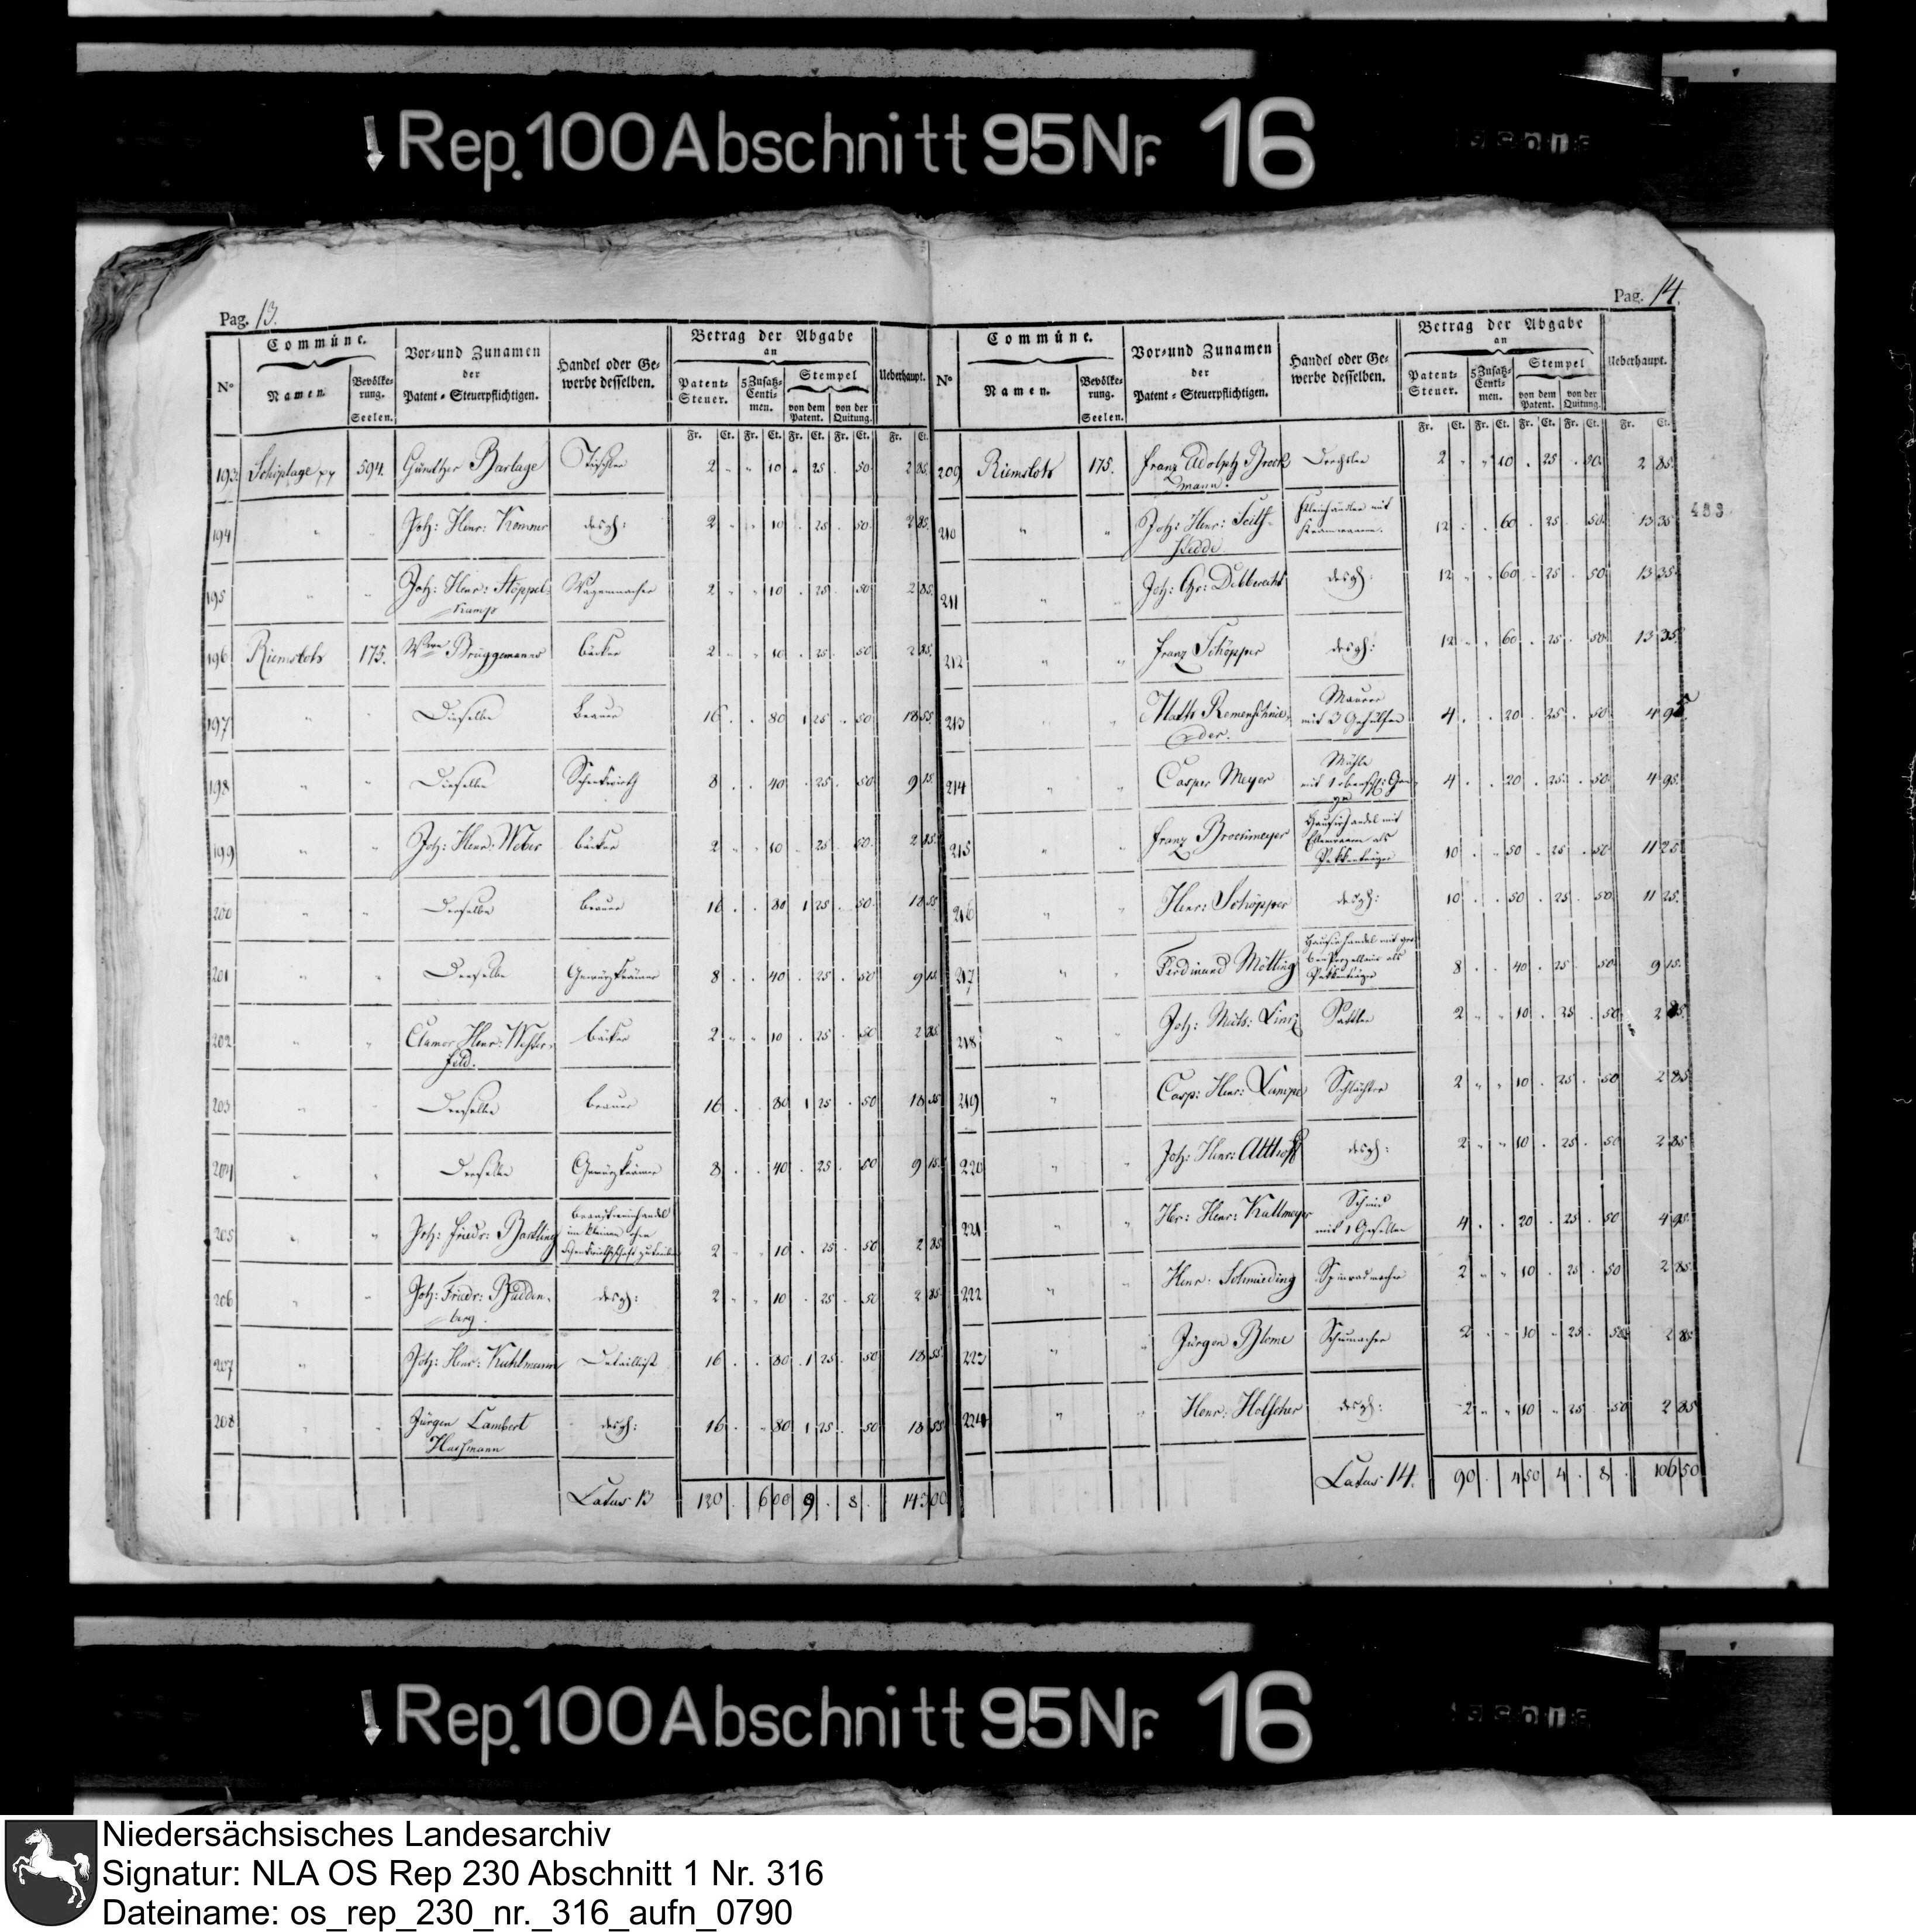 Rep. 100 Abschnitt 95 Nr. 16
Pag. 13.
Nº
Commüne.
Namen.
Bevölke-
rung.
Seelen.
Vor- und Zunamen
der
Patent-Steuerpflichtigen.
Handel oder Ge-
werbe desselben.
Betrag der Abgabe
an
Patent-
Steuer.
5 Zusatz-
Centi-
men.
Stempel
von dem
Patent.
von der
Quitung.
Ueberhaupt.
Fr. Ct. Fr. Ct. Fr. Ct. Fr. Ct. Fr. Ct.
193. 594. Barlage Tischler 2 " " 10 " 25 . 50. 2 85.
194 " " Joh: Henr: Kemner desgl: 2 " " 10 . 25 . 50. 2 85.
195 " " Joh: Henr: Stöppel- Wagenmacher 2 " " 10 . 25 . 50 2 85.
kamp
196 Riemsloh 175. Brüggemanns Bäcker 2 " " 10 . 25 . 50 2 85.
197 " " Dieselbe Brauer 16 . . 80 1 25 . 50 18 55.
198 " " Dieselbe Schenkwirth 8 . . 40 . 25 . 50 9 15.
199 " " Joh: Henr: Weber Bäcker 2 " " 10 " 25 . 50. 2 85.
200 " " Derselbe Brauer 16 . . 80 1 25 . 50. 18 55.
201 " " Derselbe Gewürzkrämer 8 . . 40 . 25 . 50 9 15.
202 " " Clamor Henr: Wester- Bäcker 2 " " 10 . 25 . 50 2 85.
feld.
203 " " Derselbe Brauer 16 . . 80 1 25 . 50 18 55.
204 " " Derselbe Gewürzkrämer 8 . . 40 . 25 . 50 9 15.
205 " " Joh: Friedr: Bartling Branntweinhandel
im kleinen ohne
Schenkwirthschaft zu treiben 2 " " 10 . 25 . 50 2 85
206 " " Joh: Friedr: Budden- desgl: 2 " " 10 . 25 . 50 2 85.
berg.
207 " Joh: Henr: Kuhlmann Detaillist 16 . . 80 . 1 25 . 50 18 55.
208 " " Jürgen Lambert desgl: 16 . " 80 1 25 . 50 18 55
Latus 13 120 . 6 00 9 . 8 . 143 00
Pag. 14.
Nº
Commüne.
Namen.
Bevölke-
rung.
Seelen.
Vor- und Zunamen
der
Patent-Steuerpflichtigen.
Handel oder Ge-
werbe desselben.
Betrag der Abgabe
an
Patent-
Steuer.
5 Zusatz-
Centi-
men.
Stempel
von dem
Patent.
von der
Quitung.
Ueberhaupt.
Fr. Ct. Fr. Ct. Fr. Ct. Fr. Ct. Fr. Ct.
209 Riemsloh 175. Franz Adolph Brock Drechsler 2 " " 10 . 25 . 50. 2 85.
mann.
210 " " Joh: Henr: Kleinhändler mit
Kramwaaren. 12 . . 60 . 25 . 50. 13 35
211 " " Joh: Chr: Dibberichs desgl: 12 " " 60 . 25 . 50. 13 35.
212 " " Franz Schöpper desgl: 12 " " 60 . 25 . 50. 13 35.
213 " " Math Remenschnie- Maurer
der. mit 3 Gehülfen 4 . . 20 . 25 . 50. 4 95.
214 " " Casper Meyer Mühle
4 . . 20 . 25 . 50. 4 95.
215 " " Franz Brockmeyer Hausirhandel mit
Ellenwaaren als
Packenträger 10 . . 50 . 25 . 50. 11 25
216 " " Henr: Schöpper desgl: 10 . . 50 . 25 . 50. 11 25.
217 " " Ferdinand Mölling Hausirhandel mit
Porzellain als
Packenträger 8 . . 40 . 25 . 50. 9 15.
218 " " Joh: Math: Linz Sattler 2 " " 10 . 25 . 50 2 85.
219 " Casp: Henr: Lampe Schlächter 2 " " 10 . 25 . 50 2 85
220 " " Joh: Henr: Althoff desgl: 2 " " 10 . 25 . 50 2 85
221 " " Her: Henr: Kallmeyer Schmied
mit 1 Gesellen 4 . . 20 . 25 . 50 4 95.
222 " " Henr: Schmieding Spinradmacher 2 " " 10 . 25 . 50 2 85.
223 " " Jürgen Blome Schumacher 2 . . 10 " 25 . 50. 2 85
224 " " Henr: Holscher desgl: 2 " " 10 " 25 . 50 2 85
Latus 14. 90 . 4 50 4 . 8 . 106 50
483
Rep. 100 Abschnitt 95 Nr. 16
Niedersächsisches Landesarchiv
Signatur: NLA OS Rep 230 Abschnitt 1 Nr. 316
Dateiname: os_rep_230_nr._316_aufn_0790